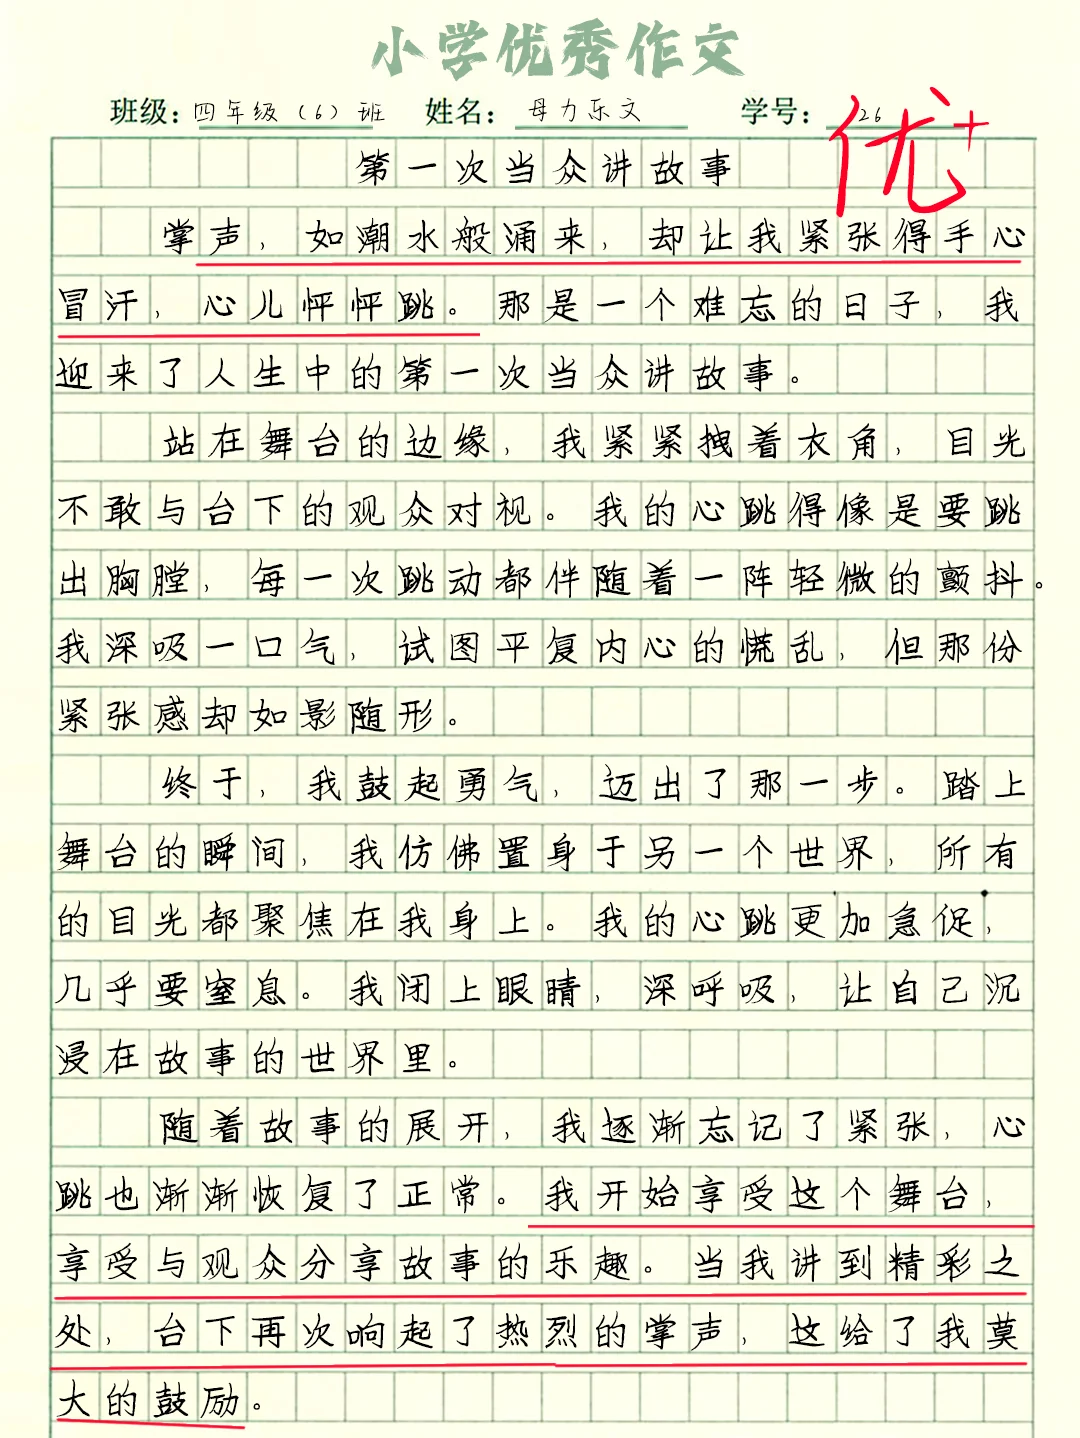 小学优秀作文
班级：四年级（6）班 姓名：母力乐文 学号：26
优+
第一次当众讲故事
掌声，如潮水般涌来，却让我紧张得手心
冒汗，心儿怦怦跳。那是一个难忘的日子，我
迎来了人生中的第一次当众讲故事。
站在舞台的边缘，我紧紧拽着衣角，目光
不敢与台下的观众对视。我的心跳得像是要跳
出胸膛，每一次跳动都伴随着一阵轻微的颤抖。
我深吸一口气，试图平复内心的慌乱，但那份
紧张感却如影随形。
终于，我鼓起勇气，迈出了那一步。踏上
舞台的瞬间，我仿佛置身于另一个世界，所有
的目光都聚焦在我身上。我的心跳更加急促，
几乎要窒息。我闭上眼睛，深呼吸，让自己沉
浸在故事的世界里。
随着故事的展开，我逐渐忘记了紧张，心
跳也渐渐恢复了正常。我开始享受这个舞台，
享受与观众分享故事的乐趣。当我讲到精彩之
处，台下再次响起了热烈的掌声，这给了我莫
大的鼓励。